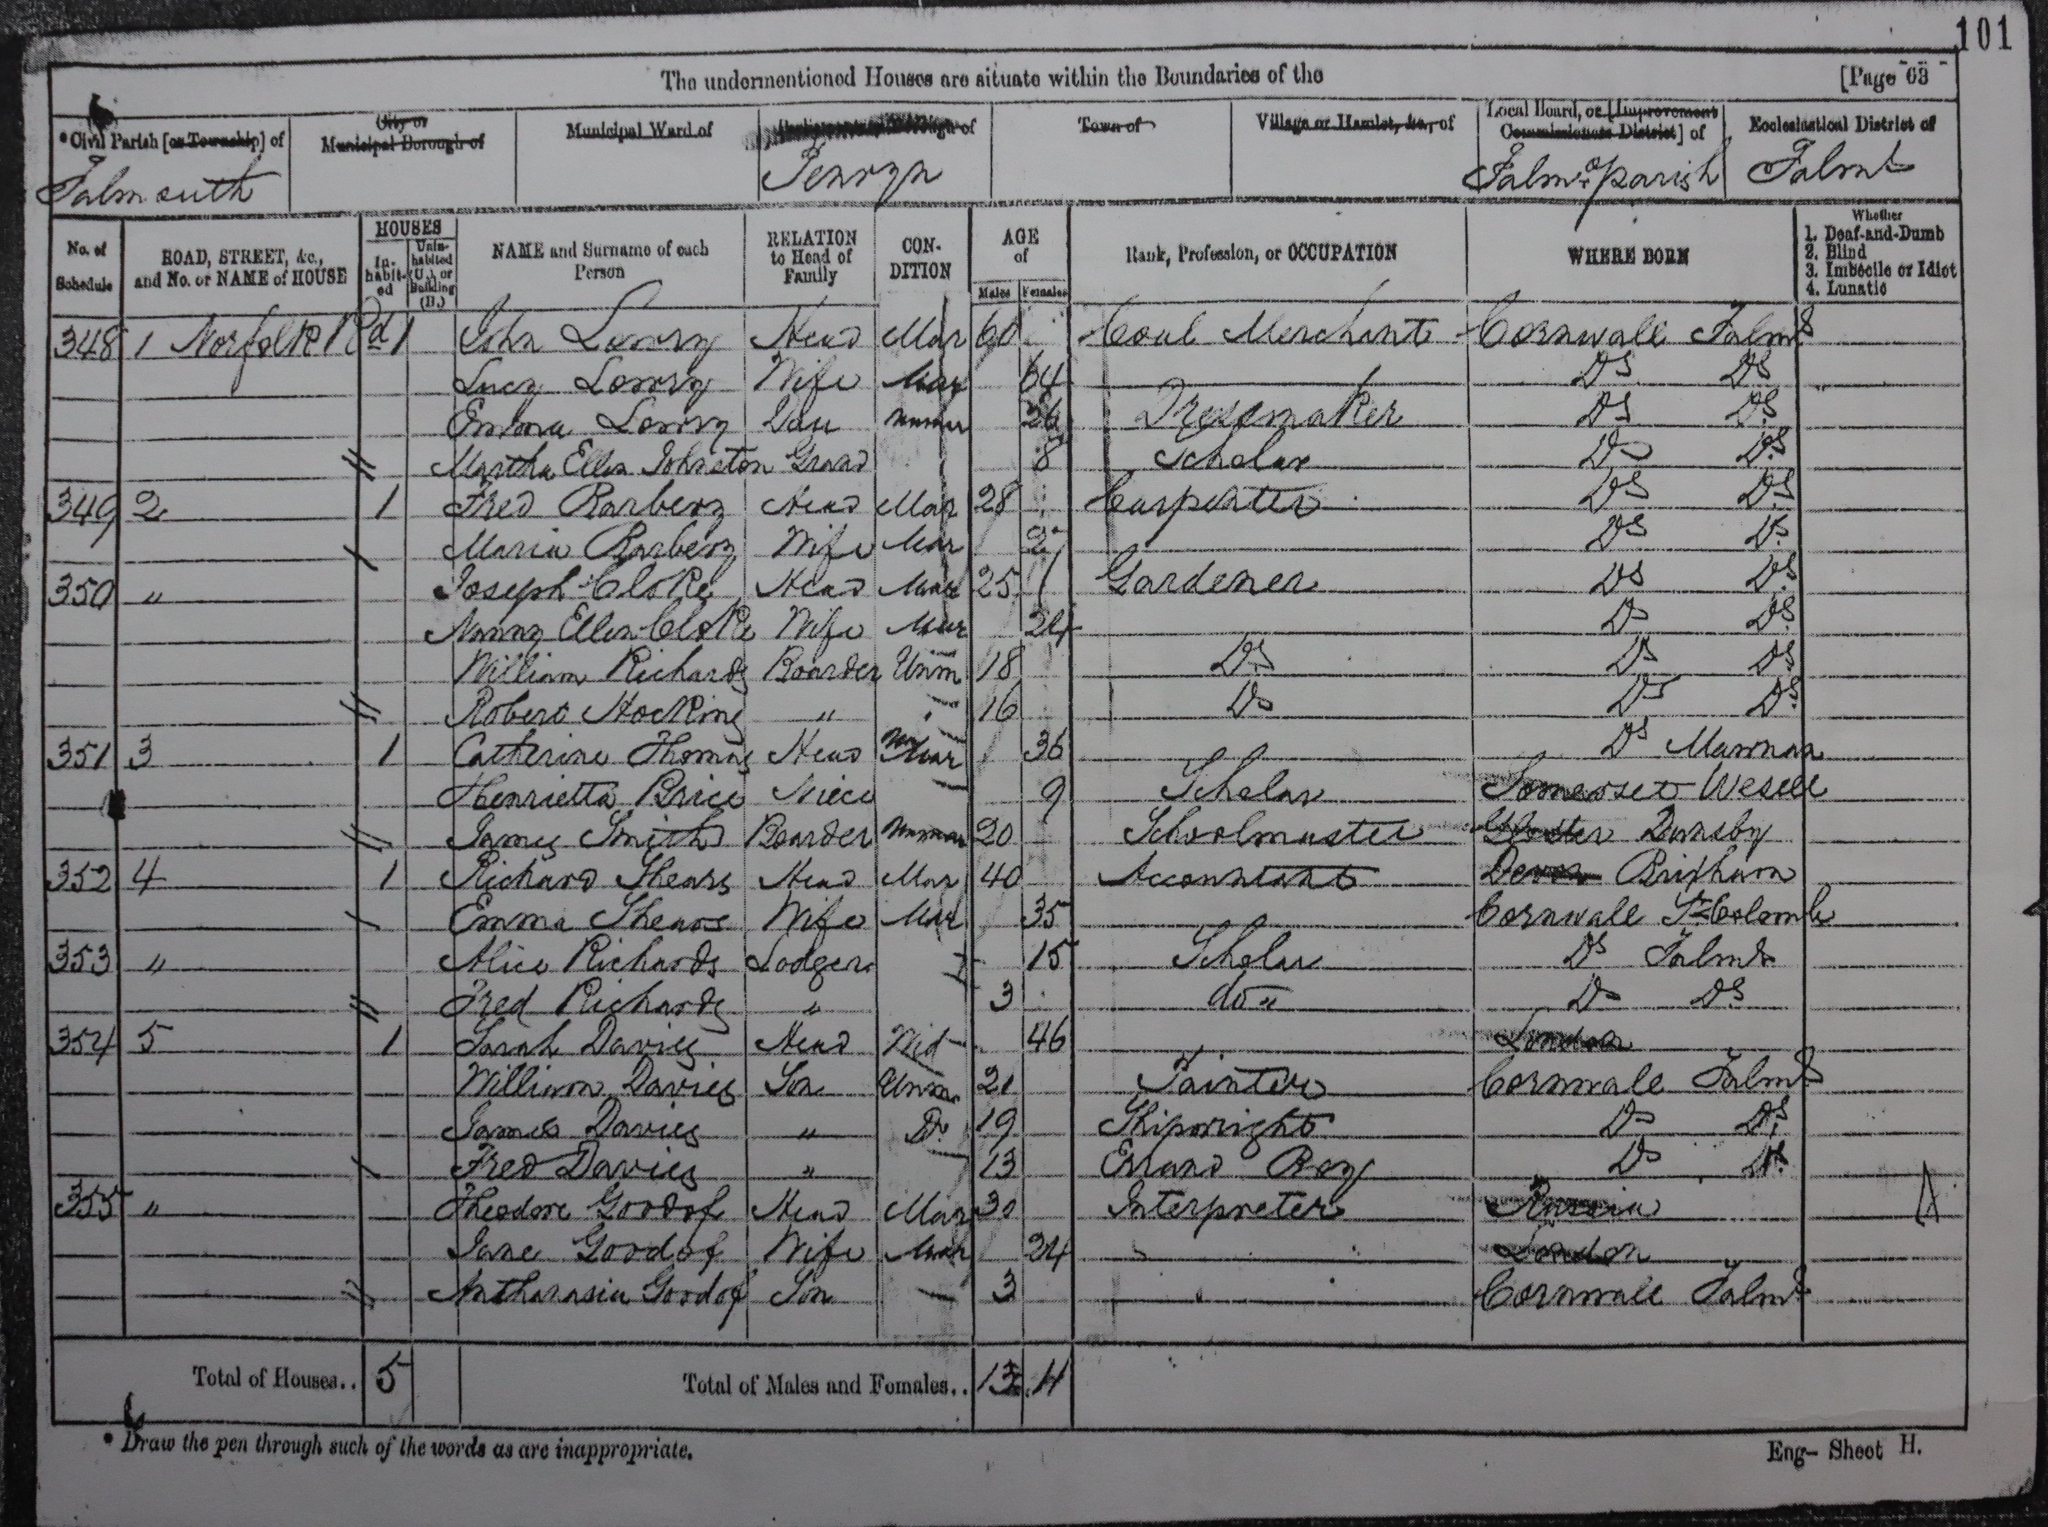 101
The undermentioned Houses are situate within the Boundaries of the [Page 63
*Civil Parish [or Township] of City or Municipal Borough of Municipal Ward of Parliamentary Borough of Town of Village or Hamlet, &c., of Local Board, or [Improvement Commissioners District] of Ecclesiastical District of
Falmouth Penryn Falmo parish Falmh
No. of Schedule ROAD, STREET, &c., and No. or NAME of HOUSE HOUSES Inhabited Uninhabited (U.), or Building (B.) NAME and Surname of each Person RELATION to Head of Family CONDITION AGE of Males Females Rank, Profession, or OCCUPATION WHERE BORN Whether 1. Deaf-and-Dumb 2. Blind 3. Imbecile or Idiot 4. Lunatic
348 1 Norfolk Rd 1 John Lowry Head Mar 60 Coal Merchant Cornwall Falmo
Lucy Lowry Wife Mar 64 Do Do
Emma Lowry Dau Unmar 26 Dressmaker Do Do
Martha Ellen Johnston Grand 8 Scholar Do Do
349 2 1 Fred Barbery Head Mar 28 Carpenter Do Do
Maria Barbery Wife Mar Do Do
350 " Joseph Cloke Head Mar 25 Gardener Do Do
Nanny Ellen Cloke Wife Mar 24 Do Do
William Richards Boarder Unm 18 Do Do Do
Robert Hocking " 16 Do Do Do
351 3 1 Catherine Thomas Head Mar 36 Do Mawnan
Henrietta Brice Niece 9 Scholar Somerset
James Smith Boarder Unmar 20 Schoolmaster
352 4 1 Richard Shears Head Mar 40 Accountant Devon Brixham
Emma Shears Wife Mar 35 Cornwall St Colomb
353 " Alice Richards Lodger 15 Scholar Do Falmo
Fred Richards " 3 do " Do Do
354 5 1 Sarah Davies Head Wid 46 London
William Davies Son Unm 21 Painter Cornwall Falmo
James Davies " Do 19 Shipwright Do Do
Fred Davies " 13 Errand Boy Do Do
355 " Theodore Goodof Head Mar 30 Interpreter Russia
Jane Goodof Wife Mar 24 London
Anthanasia Goodof Son 3 Cornwall Falmo
Total of Houses.. 5 Total of Males and Females.. 13 11
* Draw the pen through such of the words as are inappropriate.
Eng- Sheet H.